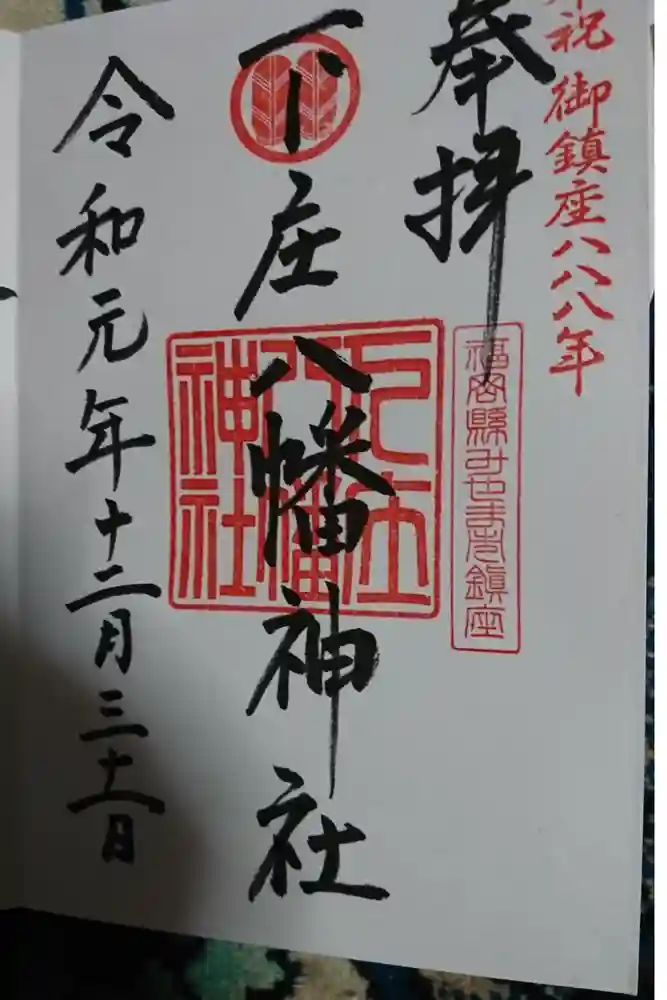 祝 御鎮座八八八年
奉拝
福岡縣みやま市鎮座
下庄八幡神社
下庄八幡神社
令和元年十二月三十一日